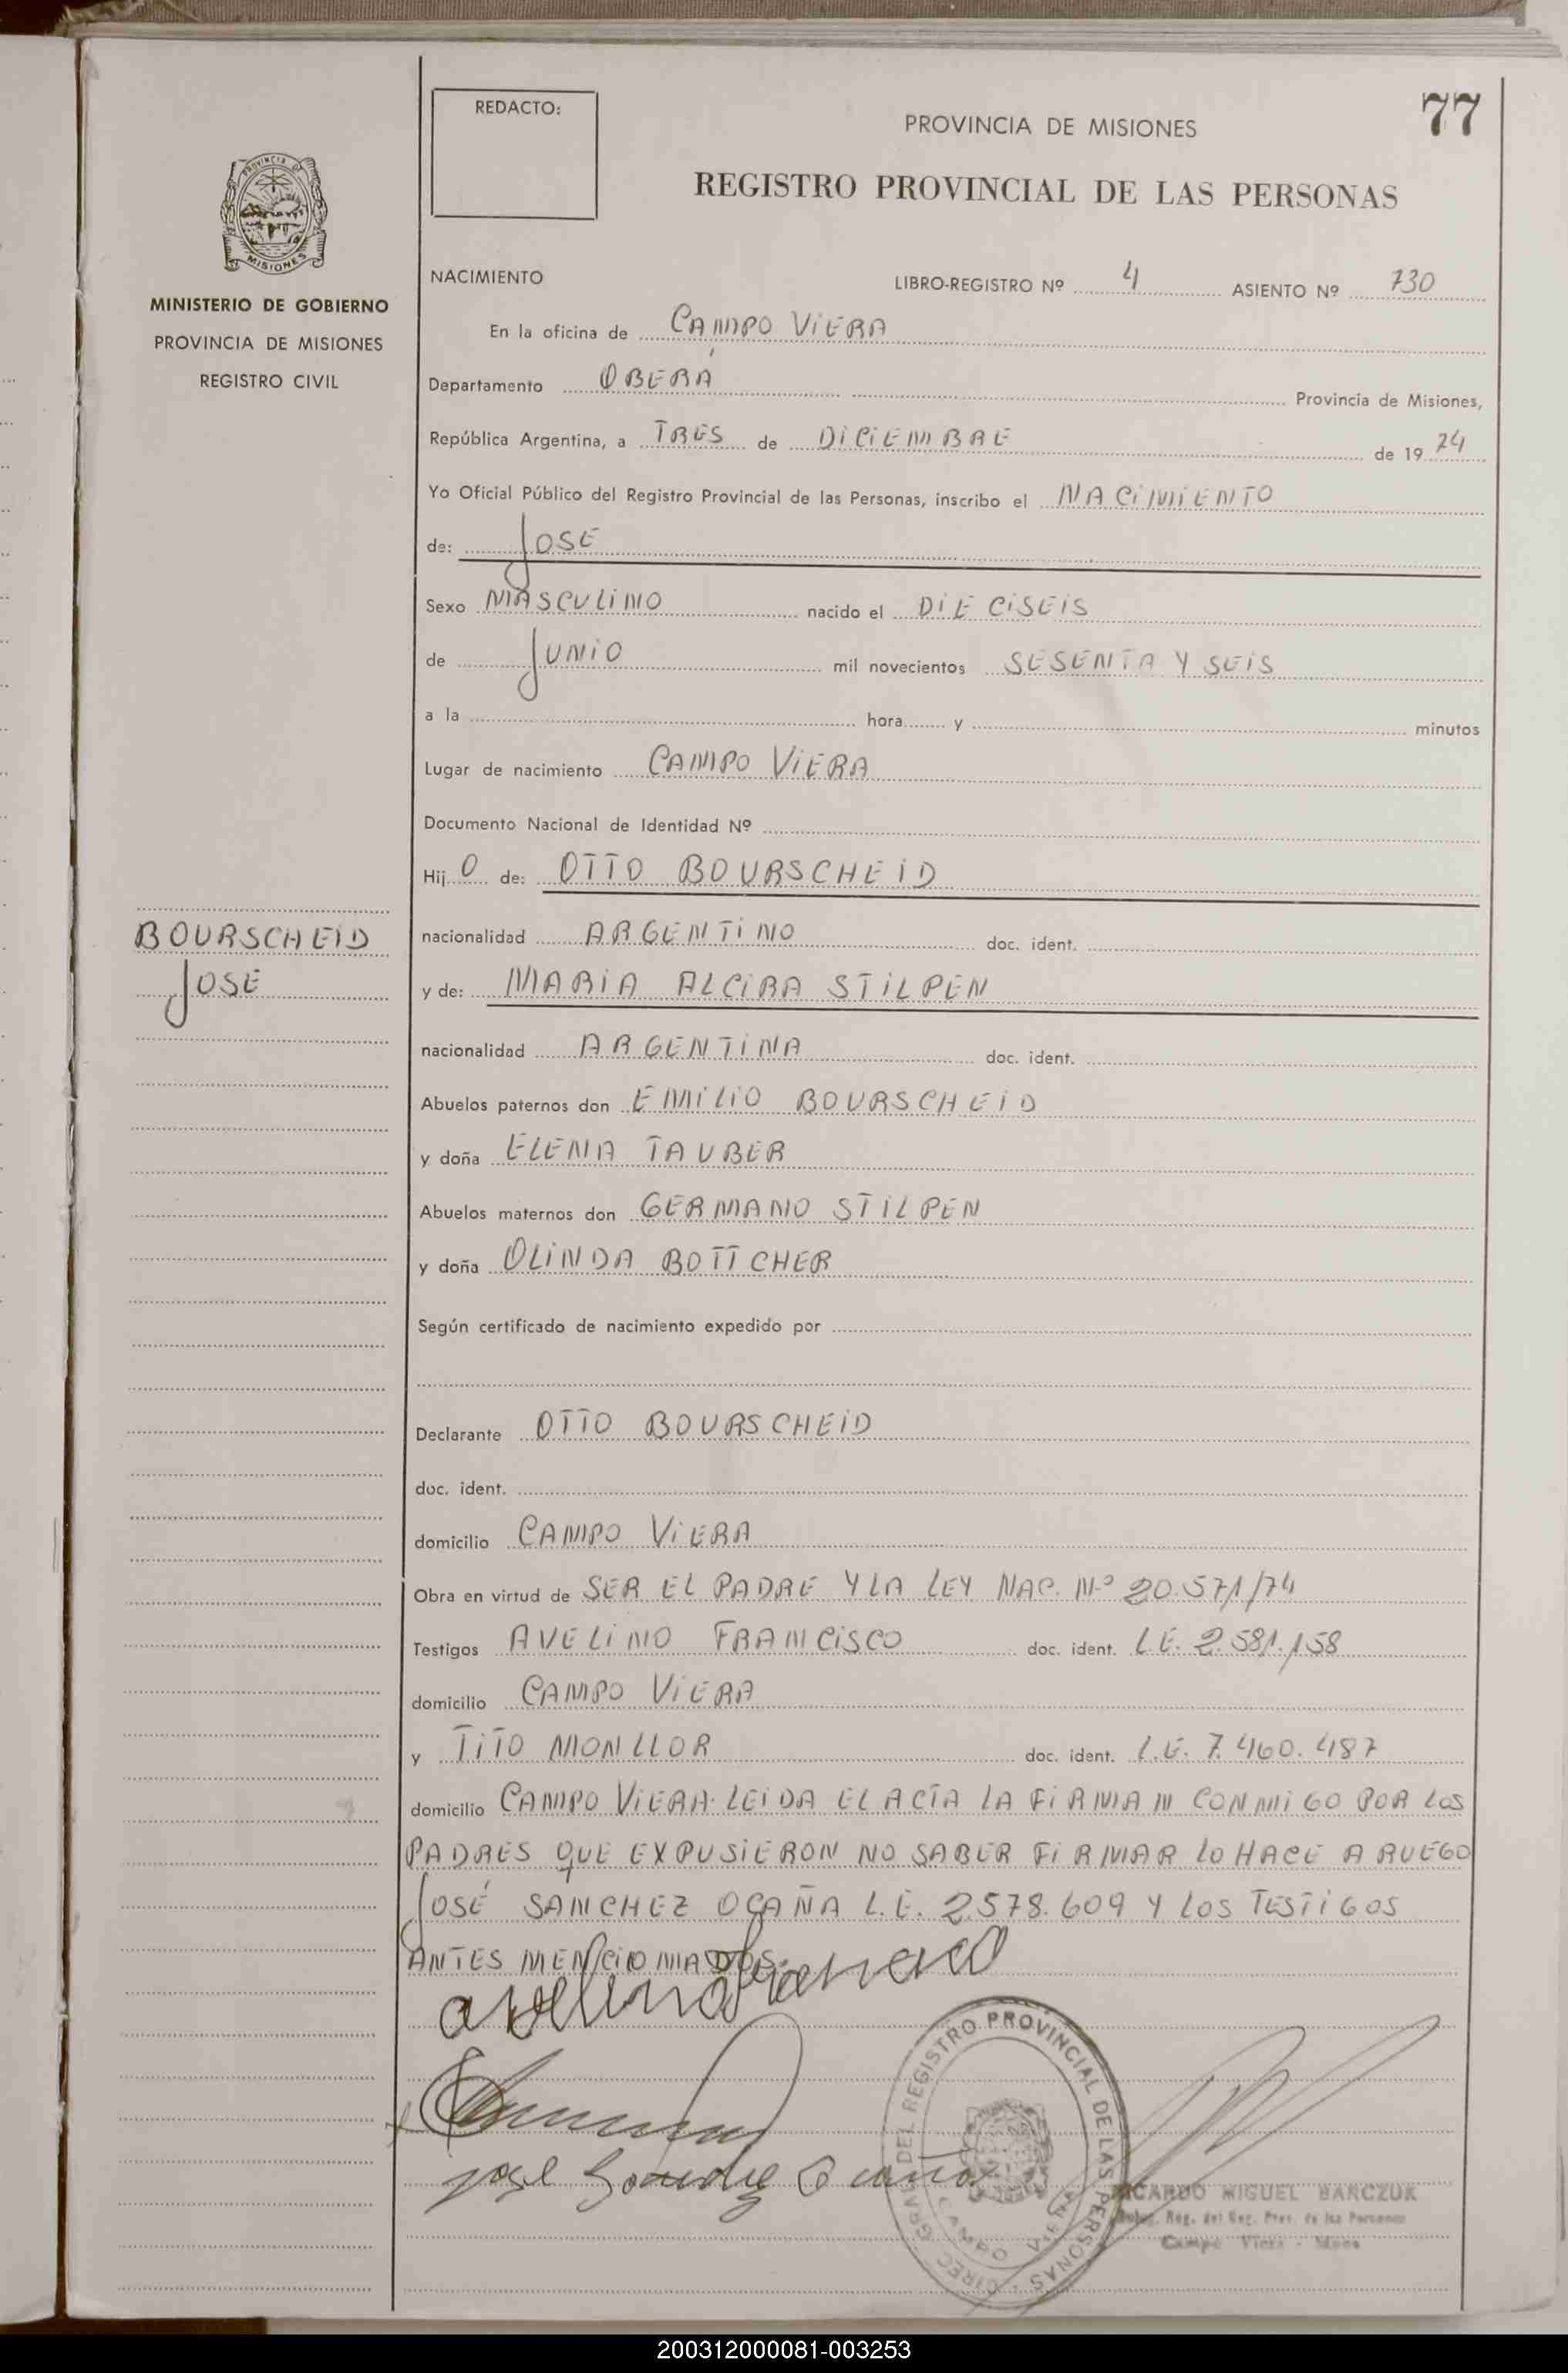 77
REDACTO:
PROVINCIA DE MISIONES
REGISTRO PROVINCIAL DE LAS PERSONAS
PROVINCIA DE
MISIONES
MINISTERIO DE GOBIERNO
PROVINCIA DE MISIONES
REGISTRO CIVIL
NACIMIENTO LIBRO-REGISTRO Nº 4 ASIENTO Nº 730
En la oficina de CAMPO VIERA
Departamento OBERÁ Provincia de Misiones,
República Argentina, a TRES de DICIEMBRE de 19 74
Yo Oficial Público del Registro Provincial de las Personas, inscribo el NACIMIENTO
de: JOSE
Sexo MASCULINO nacido el DIECISEIS
de JUNIO mil novecientos SESENTA Y SEIS
a la hora y minutos
Lugar de nacimiento CAMPO VIERA
Documento Nacional de Identidad Nº
Hij O de: OTTO BOURSCHEID
BOURSCHEID
JOSE
nacionalidad ARGENTINO doc. ident.
y de: MARIA ALCIRA STILPEN
nacionalidad ARGENTINA doc. ident.
Abuelos paternos don EMILIO BOURSCHEID
y doña ELENA TAUBER
Abuelos maternos don GERMANO STILPEN
y doña OLINDA BOTTCHER
Según certificado de nacimiento expedido por
Declarante OTTO BOURSCHEID
doc. ident.
domicilio CAMPO VIERA
Obra en virtud de SER EL PADRE Y LA LEY NAC. Nº 20.571/74
Testigos AVELINO FRANCISCO doc. ident. L.E. 2.581.158
domicilio CAMPO VIERA
y TITO MONLLOR doc. ident. L.E. 7.460.487
domicilio CAMPO VIERA. LEIDA EL ACTA LA FIRMAN CONMIGO POR LOS
PADRES QUE EXPUSIERON NO SABER FIRMAR LO HACE A RUEGO
JOSÉ SANCHEZ OCAÑA L.E. 2.578.609 Y LOS TESTIGOS
ANTES MENCIONADOS.
avelino Francisco
jose Sanchez Ocaña
DIREC. GRAL. DEL REGISTRO PROVINCIAL DE LAS PERSONAS
CAMPO VIERA
RICARDO MIGUEL BANCZUK
Deleg. Reg. del Reg. Prov. de las Personas
Campo Viera - Mnes
200312000081-003253